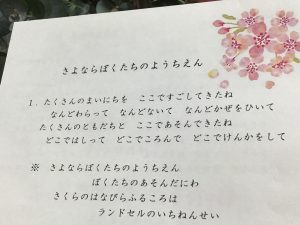 さよならぼくたちのようちえん
1．たくさんのまいにちを　ここですごしてきたね
なんどわらって　なんどないて　なんどかぜをひいて
たくさんのともだちと　ここであそんできたね
どこではしって　どこでころんで　どこでけんかをして
※　さよならぼくたちのようちえん
ぼくたちのあそんだにわ
さくらのはなびらふるころは
ランドセルのいちねんせい